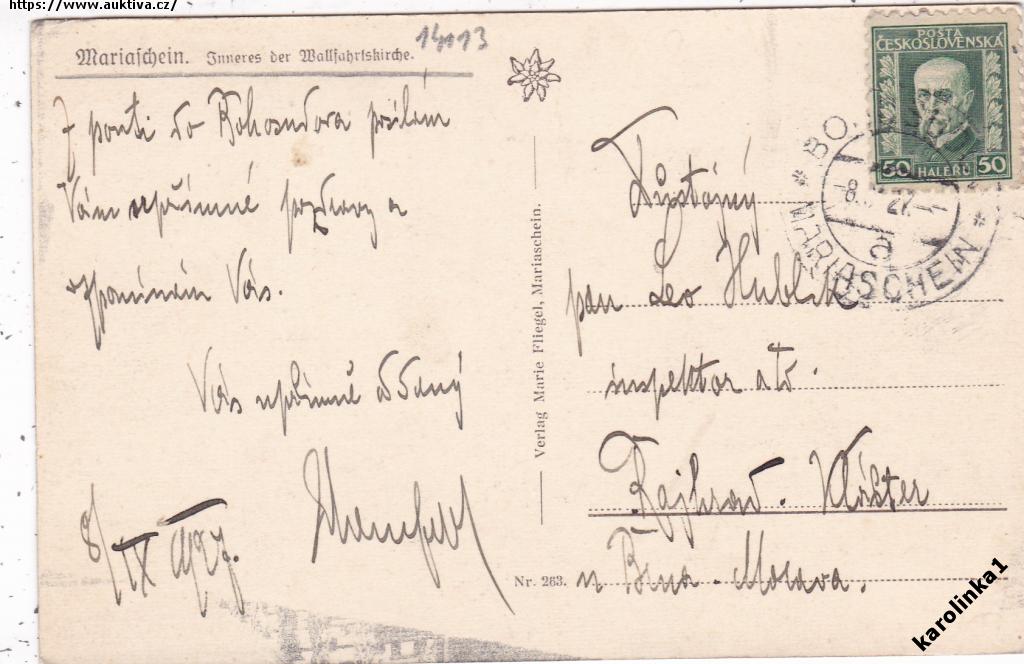 https://www.auktiva.cz/
14113
Mariaschein. Inneres der Wallfahrtskirche.
Z pouti do Bohosudova posílám
Vám upřímné pozdravy a
vzpomínám Vás.
Vás upřímně oddaný
8/IX 1927.
Verlag Marie Fliegel, Mariaschein.
Nr. 263.
POŠTA
ČESKOSLOVENSKÁ
50 HALÉRŮ 50
MARIASCHEIN
Důstojný
pan Leo Hublík
inspektor atd.
Rajhrad. Klášter
u Brna - Morava.
karolinka1